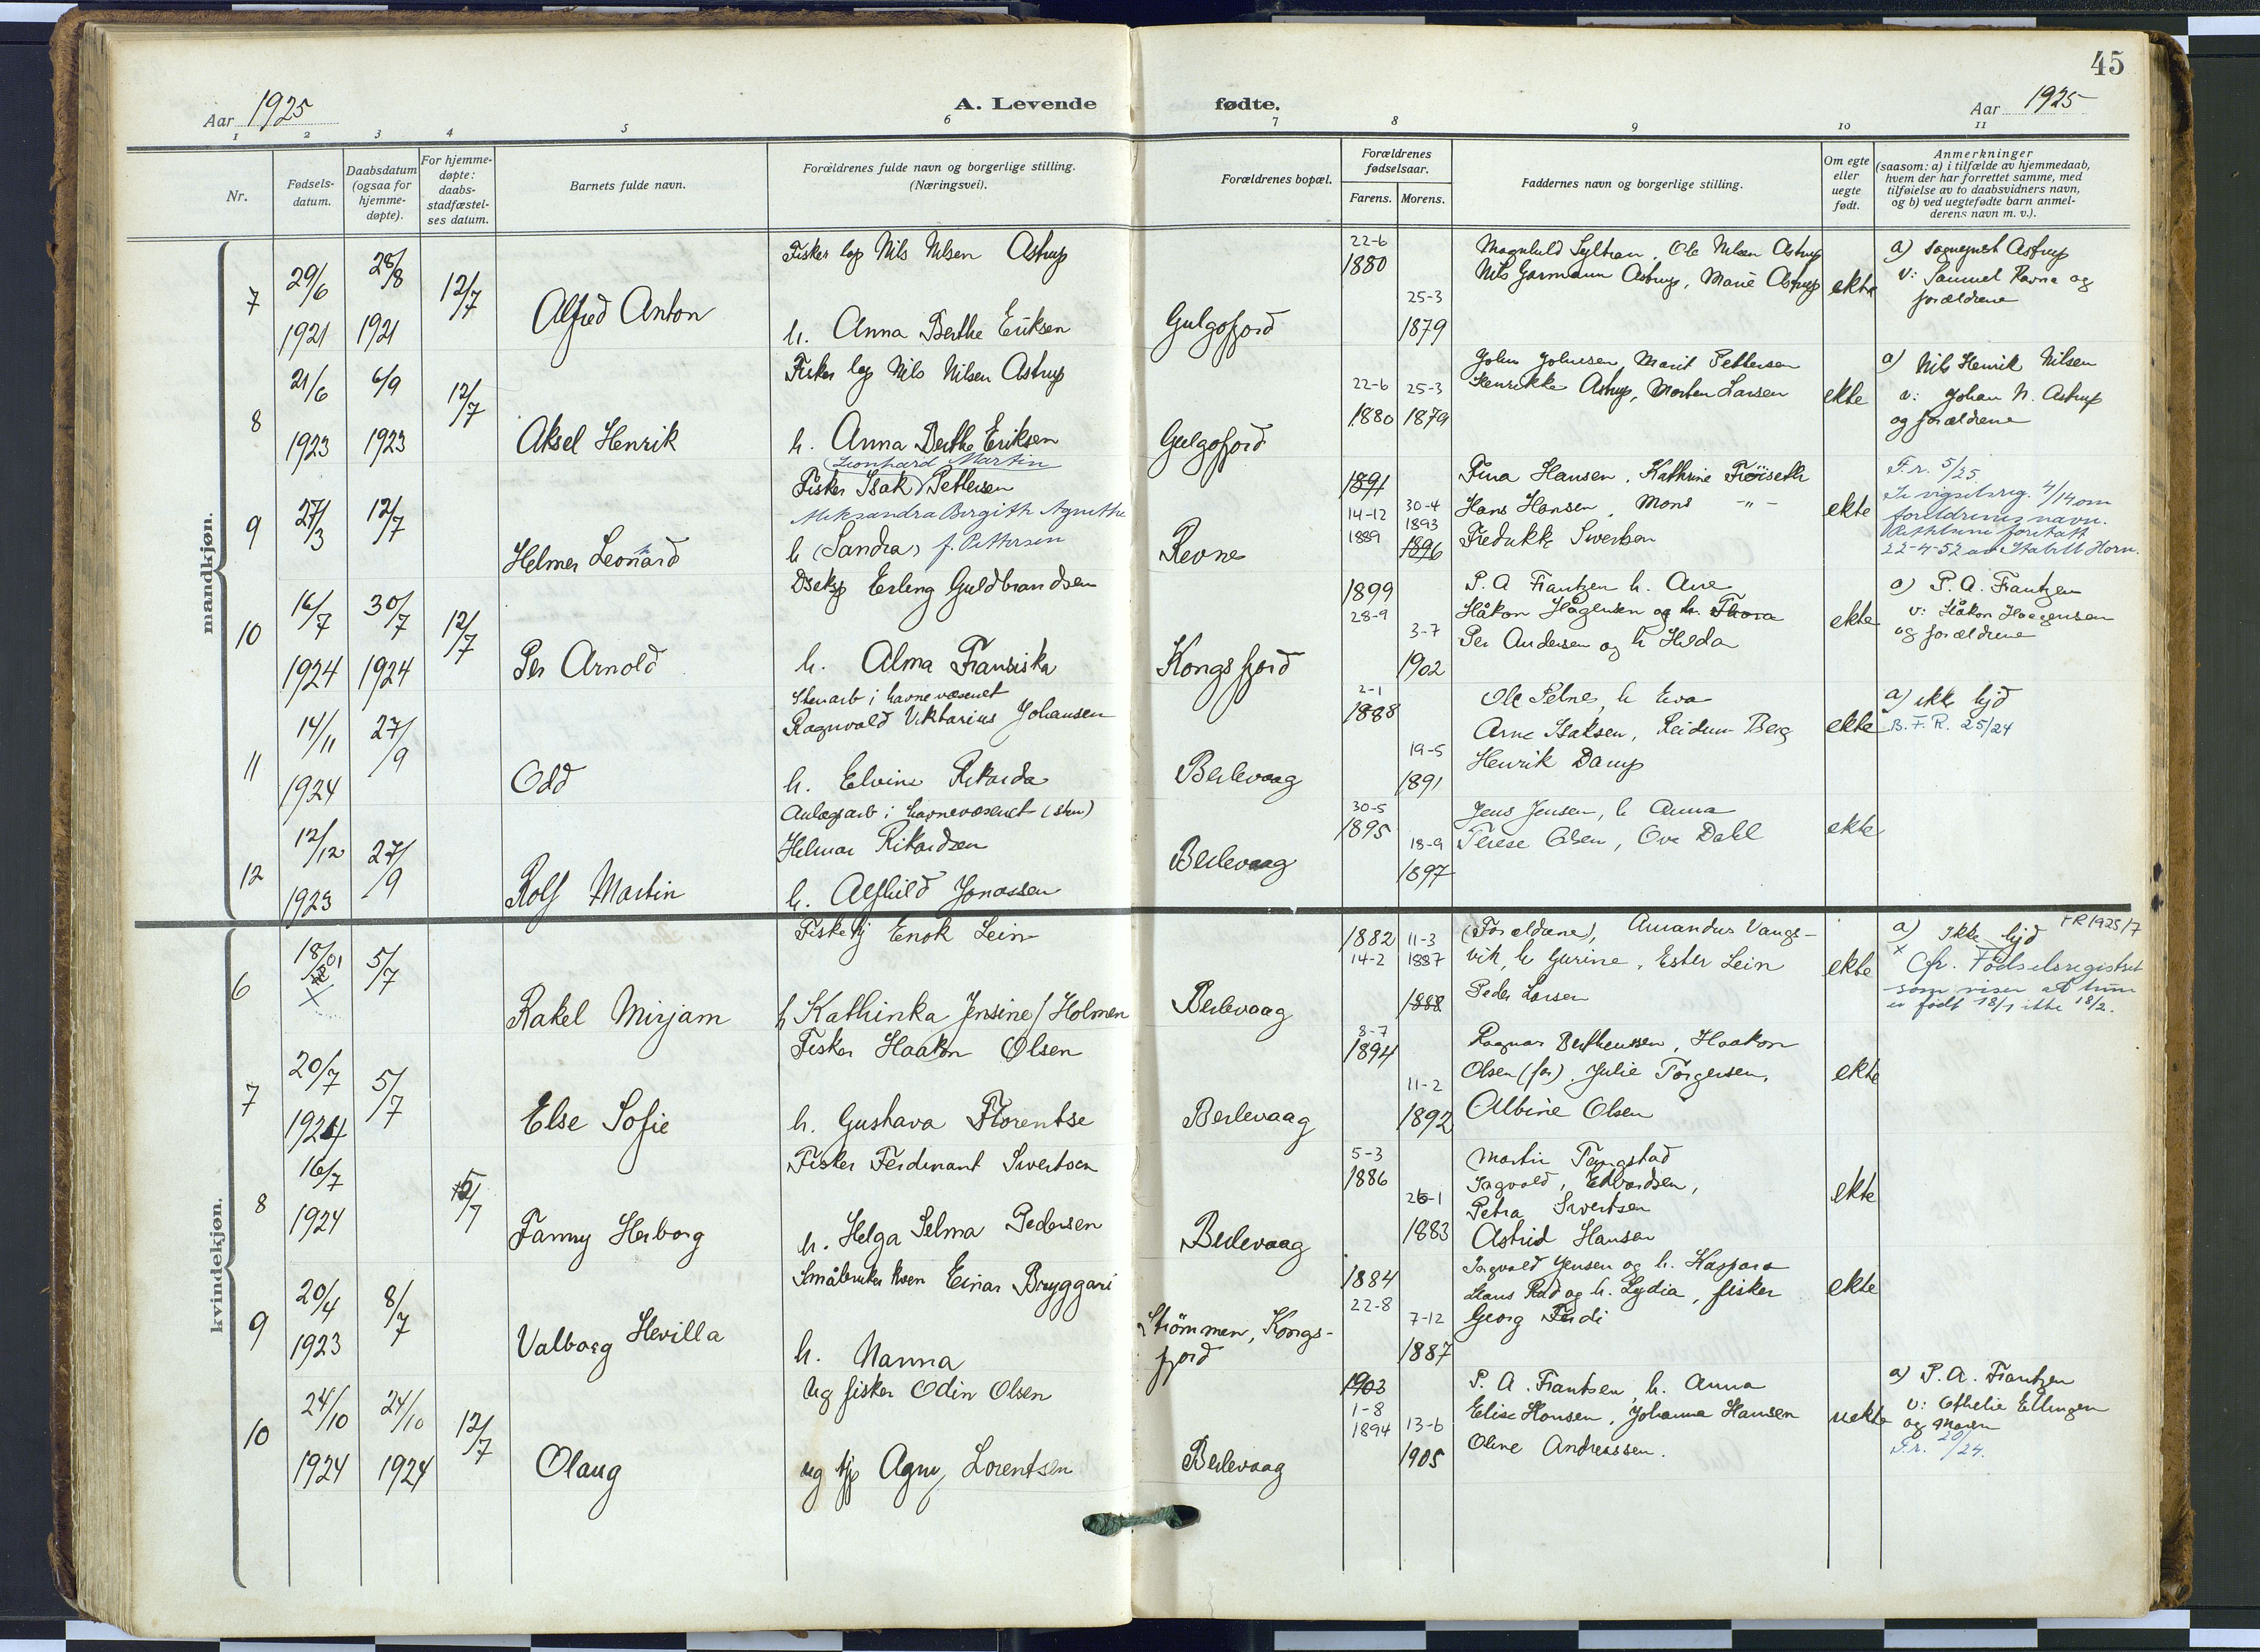 45
Aar 1925
A. Levende fødte.
Aar 1925
1 2 3 4 5 6 7 8 9 10 11
Nr.
Fødsels-
datum.
Daabsdatum
(ogsaa for
hjemme-
døpte).
For hjemme-
døpte:
daabs-
stadfæstel-
ses datum.
Barnets fulde navn.
Forældrenes fulde navn og borgerlige stilling.
(Næringsvei).
Forældrenes bopæl.
Forældrenes
fødselsaar.
Farens. Morens.
Faddernes navn og borgerlige stilling.
Om egte
eller
uegte
født.
Anmerkninger
(saasom: a) i tilfælde av hjemmedaab,
hvem der har forrettet samme, med
tilføielse av to daabsvidners navn,
og b) ved uegtefødte barn anmel-
derens navn m. v.).
mandkjøn.
7
29/6
1921
28/8
1921
12/7
Alfred Anton
Fisker lap Nils Nilsen Astrup
h. Anna Berthe Eriksen
Gulgofjord
22-6
1880
25-3
1879
Magnhild Syltran, Ole Nilsen Astrup
Nils Garmann Astrup, Marie Astrup
ekte
a) sogneprest Astrup
v: Samuel Ravna og
forældrene
8
21/6
1923
6/9
1923
12/7
Aksel Henrik
Fisker lap Nils Nilsen Astrup
h. Anna Berthe Eriksen
Gulgofjord
22-6
1880
25-3
1879
John Johnsen, Marit Pettersen
Henrikke Astrup, Morten Larsen
ekte
a) Nils Henrik Nilsen
v: Johan N. Astrup
og forældrene
9
27/3
12/7
Helmer Leonard
(Leonhard Martin
Fisker Isak) Pettersen
Aleksandra Birgith Agnethe
h (Sandra) f. Pettersen
Revne
1891
14-12
1889
30-4
1893
1896
Fina Hansen, Kathrine Fröiseth
Hans Hansen, Mons -"-
Fredrikke Sivertsen
ekte
F.r. 5/25.
Se vigselsreg. 4/14 om
foreldrenes navn.
Rettelsene foretatt
22-4-52 av Statsll Horn.
10
16/7
1924
30/7
1924
12/7
Per Arnold
Dseksp Erling Guldbrandsen
h. Alma Fransiska
Kongsfjord
1899
28-9
3-7
1902
P. A Frantzen h. Ane
Håkon Hågensen og h. Thora
Per Andersen og h Hilda
ekte
a) P. A. Frantzen
v: Håkon Haagensen
og forældrene
11
14/11
1924
27/9
Odd
Stenarb i havnevæsenet
Ragnvald Viktarius Johansen
h. Elvine Rikarda
Berlevaag
2-1
1888
19-5
1891
Ole Pelne, h Eva
Arne Isaksen, Reidun Berg
Henrik Damp
ekte
a) ikke hjd
B. F. R. 25/24
12
12/12
1923
27/9
Rolf Martin
Anlægsarb i havnevæsenet (sten)
Helmar Rikardsen
h. Alfhild Jonassen
Berlevaag
30-5
1895
18-9
1897
Jens Jensen, h Anna
Terese Olsen, Ove Dahl
ekte
kvindekjøn.
6
18/01
X
5/7
Rakel Mirjam
Fiskekj Enok Lein
h Kathinka Jensine f Holmen
Berlevaag
1882
14-2
11-3
1887
1888
(Foreldrene), Amandus Vangs-
vik, h Gurine, Ester Lein
Peder Larsen
ekte
a) Ikke hjd FR 1925/7
X Cfr. Fødselsregistret
som viser at hun
er født 18/1 ikke 18/2.
7
20/7
1924
5/7
Else Sofie
Fisker Haakon Olsen
h. Gustava Florentse
Berlevaag
8-7
1894
11-2
1892
Ragnar Bertheussen, Haakon
Olsen (far), Julie Torgersen,
Albine Olsen
ekte
8
16/7
1924
5/7
Fanny Herborg
Fisker Ferdinant Sivertsen
h. Helga Selma Pedersen
Berlevaag
5-3
1886
26-1
1883
Martin Tangstad
Ingvald, Edvardsen,
Petra Sivertsen
Astrid Hansen
ekte
9
20/4
1923
8/7
Valborg Hevilla
Småbruker kven Einar Bryggari
h. Nanna
Strömmen, Kongs-
fjord
1884
22-8
7-12
1887
Ingvald Jensen og h. Kaspara
Hans Rød og h. Lydia, fisker
Georg Ferdi
ekte
10
24/10
1924
24/10
1924
12/7
Olaug
Ug fisker Odin Olsen
ug tjp Agny Lorentsen
Berlevaag
1903
1-8
1894
13-6
1905
P. A. Frantsen, h. Anna
Elise Hansen, Johanna Hansen
Oline Andreassen.
uekte
a) P. A. Frantzen
v: Othelie Ellingsen
og moren
F.r. 20/24.